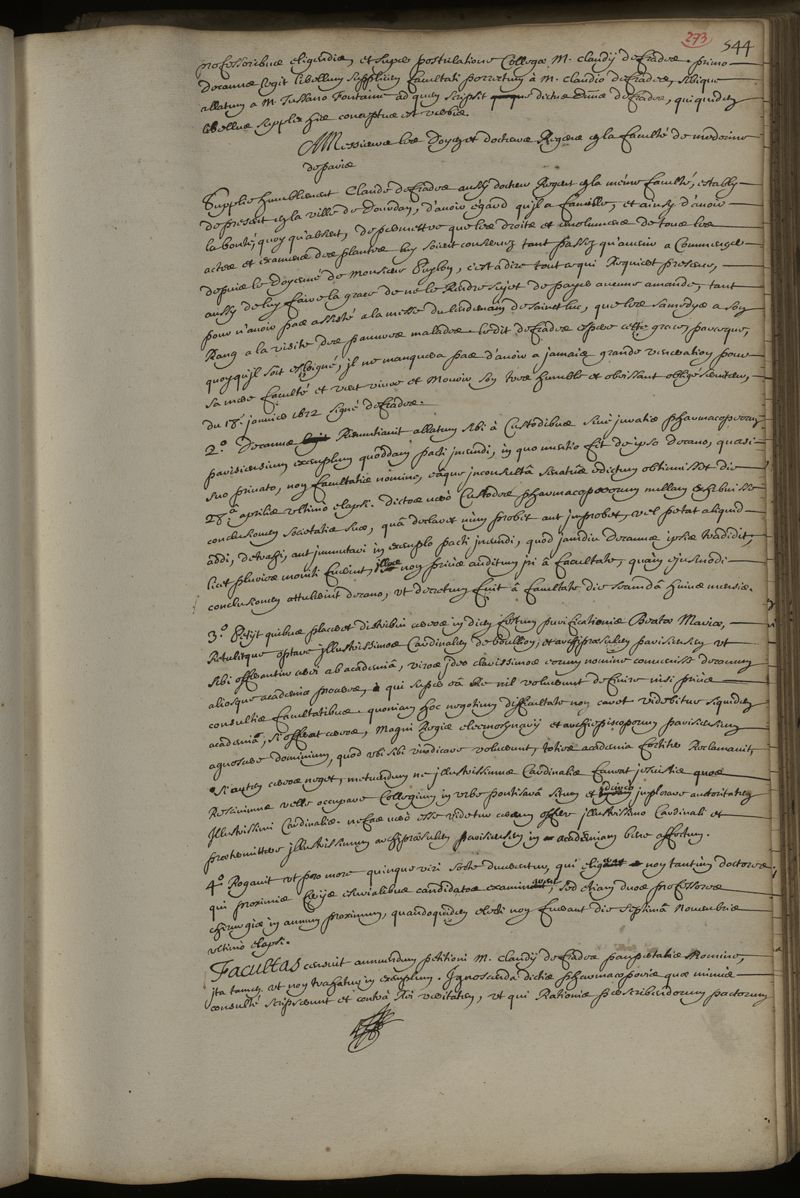 273 544
professoribus eligendis, et super postulatione Collegæ M. Claudij deFrades. primo
Decanus legit libellum supplicem facultati porrectum à M. Claudio deFrades, sibique
allatum a M. Fontaine ad quem scripsit dictus deFrades, qui quidem
libellus supplex his conceptus est verbis.
A Messieurs les Doyen et docteurs Regens en la faculté de medecine
de paris
Supplie humblement Claude deFrades aussy docteur Regent en la méme faculté, estably
de present en la ville de Dourdan, d'avoir egard qu'il a famille, et ainsy d'avoir
la bonté, quoy qu'absent, de permettre que les droits et emolumens de tous les
actes et examens des plantes luy soient conservez tant passez qu'avenir a Commencer
depuis le Doyenné de Monsieur Puylon, c'est à dire tout ce qui Requiert presens,
aussy de luy faire la grace de ne le Rendre sujet de payer aucune amande, tant
pour n'avoir pas assisté a la messe du lendemain de sainct luc, que les samedys a son
Rang a la visite des pauvres malades. ledit deFrades espere cette grace, parceque,
quoyqu'il soit esloigné, il ne manquera pas d'avoir a jamais grande veneration pour
sa mere faculté et veut vivre et Mourir son tres humble et obeissant obligé serviteur,
du 18e janvier 1672 signé deFrades.
2.o Decanus Renuntiavit allatum sibi à Custodibus sive juratis pharmacopoeorum
parisiensium exemplum quoddam pacti ineundi, in quo mentio fit de ipso decano, quasi
suo privato, non facultatis nomine, eaque inconsultâ senatus edictum obtinuisset die
28.a aprilis ultimò elapsi. dictos verò Custodes pharmacopoeorum nullam exhibuisse
conclusionem societatis suæ, quâ declaret num probet aut improbet, vel petat aliquid
addi, detrahi, aut immutari in exemplo pacti ineundi, quod jamdiu decanus ipsis tradidit,
licet pluries moniti fuerint, illos non priùs auditum iri à facultate, quàm ejusmodi
conclusionem attulerint decano, ut decretum fuit à facultate die secundâ hujus mensis.
3.o Petijt quibus placeret distribui cereos in diem festum purificationis Beatæ Mariæ,
Retulitque optare illustrissimos Cardinalem de boüillon, et archipræsulem parisiensem ut
sibi offerantur cerei ab academiâ, viros ideo clarissimos eorum nomine convenisse decanum
aliosque academiæ proceres, qui super eâ Re nil voluerunt definire nisi priùs
consultis facultatibus. quoniam hoc negotium difficultate non caret. videbitur siquidem
academia, si offerat cereos, Magni Regis eleemosynarij et archiepiscoporum parisiensium
agnoscere dominium, quod ubi sibi vindicare voluerunt, toties academia fortiter Reclamavit,
Si autem cereos neget, metuendum ne illustrissimus Cardinalis faveat jesuitis quos
Rescivimus velle occupare Collegium in urbe pontisarâ situm et idcirco implorare autoritatem
Illustrissimi Cardinalis. nefas verò esse videtur cereum offerre illustrissimo Cardinali et
protermittere illustrissimum archipræsulem parisiensem in academiam bene affectum.
4.o Rogavit ut pro more quinque viri sorte ducerentur, qui eligerent non tantùm doctores
qui proximis Cerijs esurialibus candidatos examinarent, sed etiam duos professores
chirurgiæ in annum proximum, quandoquidem electi non fuerant die septimâ Novembris
ultimò elapsi.
Facultas censuit annuendum petitioni M. Claudij deFrades paupertatis Nomine,
ita tamen ut non trahatur in exemplum. Ignoscendum dictis pharmacopoeis quæ minùs
consultè scripserunt et contrà Rei veritatem, ut qui Rationis præscribendorum pactorum